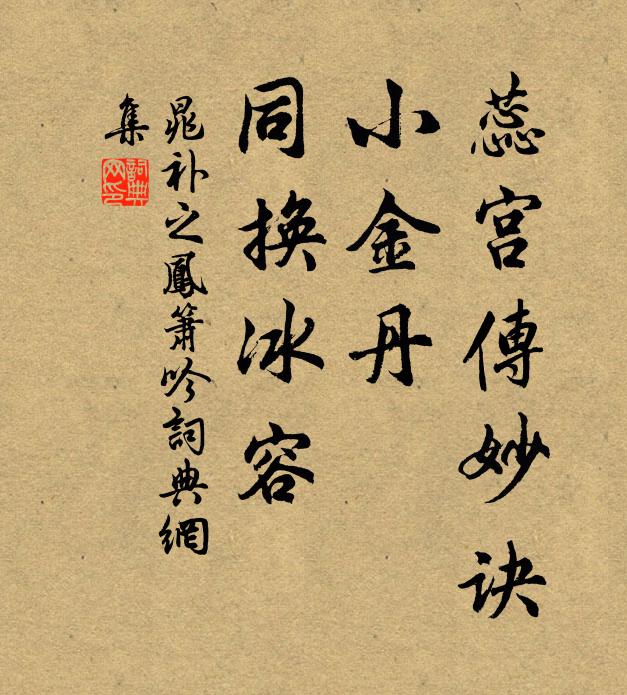 蕊宫傳妙訣
小金丹
同換冰容
晁补之鳳簫吟詞典網
集
詞典网印